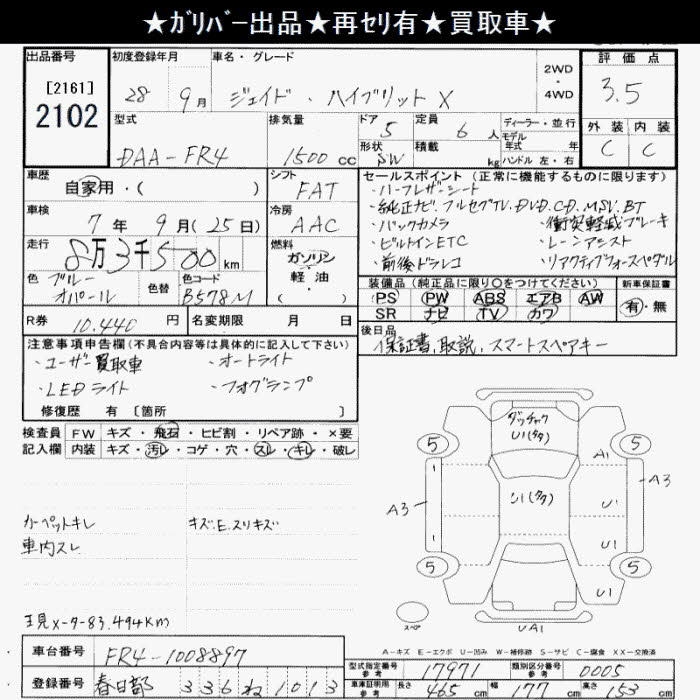 ★ｶﾞﾘﾊﾞｰ出品★再ｾﾘ有★買取車★
出品番号 初度登録年月 車名・グレード 2WD・4WD 評価点
[2161]
2102 28 9月 ジェイド・ハイブリットX 3.5
型式 排気量 ドア 5 定員 6人 ディーラー・並行 外装 内装
DAA-FR4 1500cc 形状 SW 積載 kg モデル年式 年 ハンドル 左・右 C C
車歴 自家用・( ) シフト FAT セールスポイント (正常に機能するものに限ります)
・ハーフレザーシート
車検 7年9月(25日) 冷房 AAC ・純正ナビ.フルセグTV.DVD.CD.MSV.BT
・バックカメラ ・衝突軽減ブレーキ
走行 8万3千500km 燃料 ガソリン・軽油・( ) ・ビルトインETC ・レーンアシスト
・前後ドラレコ ・リアクティブフォースペダル
色 ブルーオパール 色替 色コード B578M 装備品 (純正品に限り○をつけてください) 新車保証書
PS PW ABS エアB AW 有・無
SR ナビ TV カワ
R券 10.440円 名変期限 月 日 後日品
保証書,取説.スマートスペアキー
注意事項申告欄(不具合内容等は具体的に記入して下さい)
・ユーザー買取車 ・オートライト
・LEDライト ・フォグランプ
修復歴 有 [箇所 ]
検査員記入欄 FW キズ・飛石・ヒビ割・リペア跡・×要
内装 キズ・汚レ・コゲ・穴・スレ・キレ・破レ
カーペットキレ キズ.E.スリキズ
車内スレ
現メーター83.494km
ダッチャク
U1(タタ)
5 5
A1
U1(タタ)
A3 A3
1 1
U1
U1
5 5
U1
スペア
UA1
A-キズ E-エクボ U-凹み W-補修跡 S-サビ C-腐食 XX-交換済
車台番号 FR4-1008897
型式指定番号 参考 17971 類別区分番号 参考 0005
登録番号 春日部 336ね1013
車庫証明用参考 長さ 465cm 幅 177cm 高さ 153cm